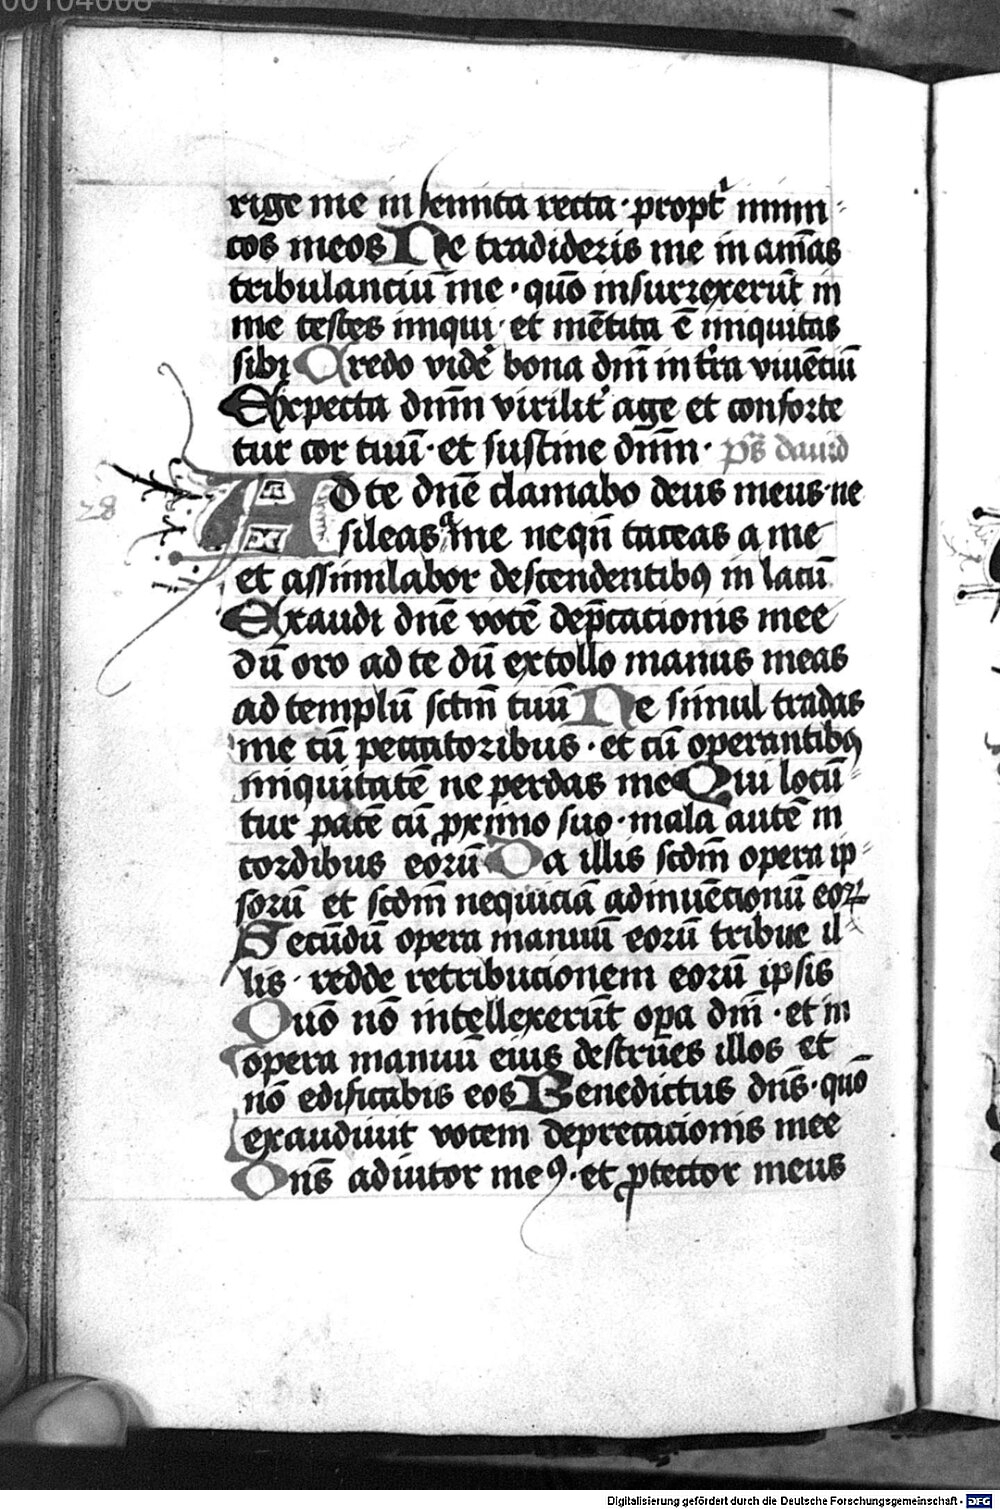 00104008
rige me in semita recta · propt' inimi-
cos meos Ne tradideris me in aīas
tribulanciū me · quō insurrexerūt in
me testes iniqui · et mētita ē iniquitas
sibi Credo vidē bona dnī in t'ra viuēciū
Expecta dnm̄ virilit' age et conforte
tur cor tuū · et sustine dnm̄ · ps̄ dauid
28
Ad te dnē clamabo deus meus · ne
sileas a me nequn̄ taceas a me
et assimilabor descendentibꝰ in lacū
Exaudi dnē vocē dep̄cacionis mee
dū oro ad te dū extollo manus meas
ad templū sctm̄ tuū Ne simul tradas
me cū peccatoribus · et cū operantibꝰ
iniquitatē ne perdas me Qui locū-
tur pacē cū ꝓximo suo · mala autē in
cordibus eorū Da illis scdm̄ opera ip-
sorū et scdm̄ nequiciā adinuēcionū eoꝝ
Secūdū opera manuū eorū tribue il-
lis · redde retribucionem eorū ipsis
Quō nō intellexerūt opa dnī · et in
opera manuū eius destrūes illos et
nō edificabis eos Benedictus dns̄ · quō
exaudiuit vocem deprecacionis mee
Dns̄ adiutor meꝰ · et ꝓtector meus
Digitalisierung gefördert durch die Deutsche Forschungsgemeinschaft - DFG